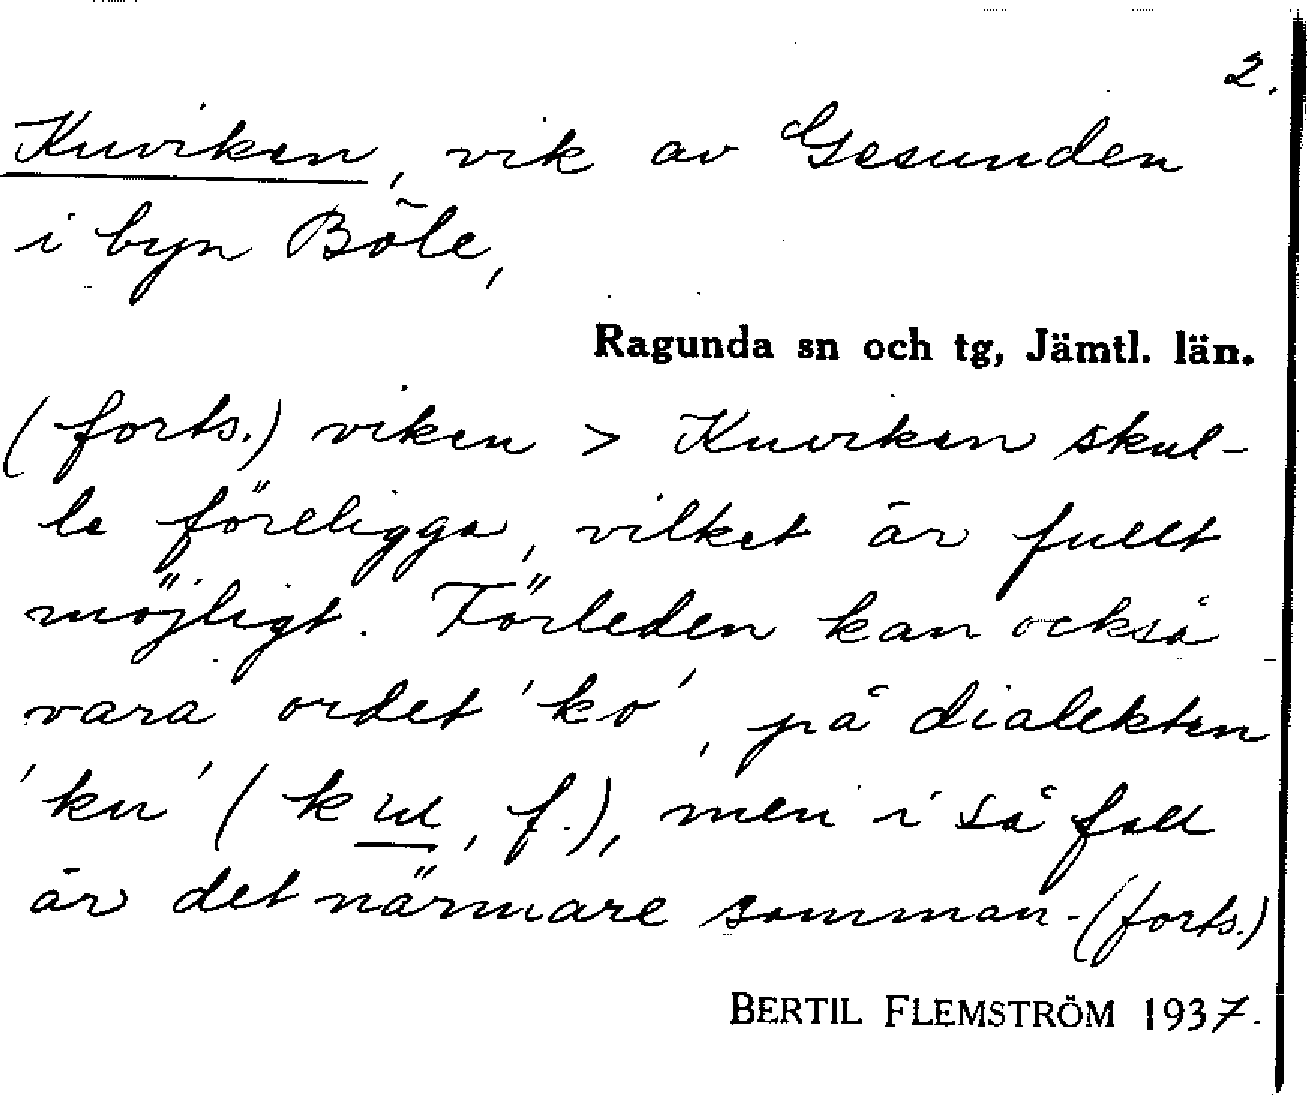 2.
Kuviken, vik av Gesunden
i byn Böle,
Ragunda sn och tg, Jämtl. län.
(forts.) viken > Kuviken skul-
le föreligga, vilket är fullt
möjligt. Förleden kan också
vara ordet 'ko', på dialekten
'ku' (k, f.), men i så fall
är det närmare samman- (forts.)
BERTIL FLEMSTRÖM 1937.